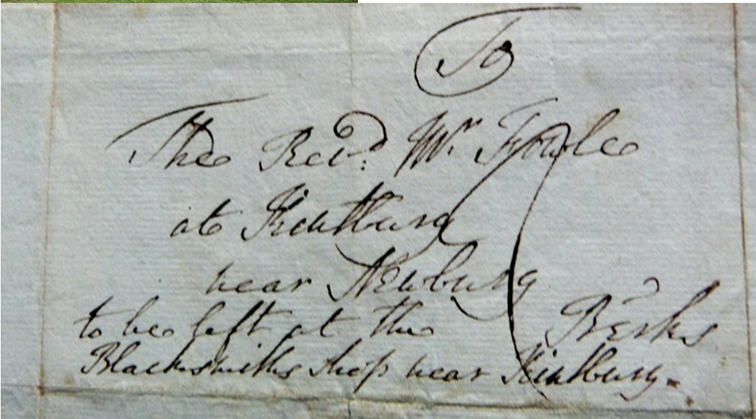 To
The Revd. Mr. Fowle
at Kintbury
near Newbury
Berks
to be left at the
Blacksmiths Shop near Kintbury.